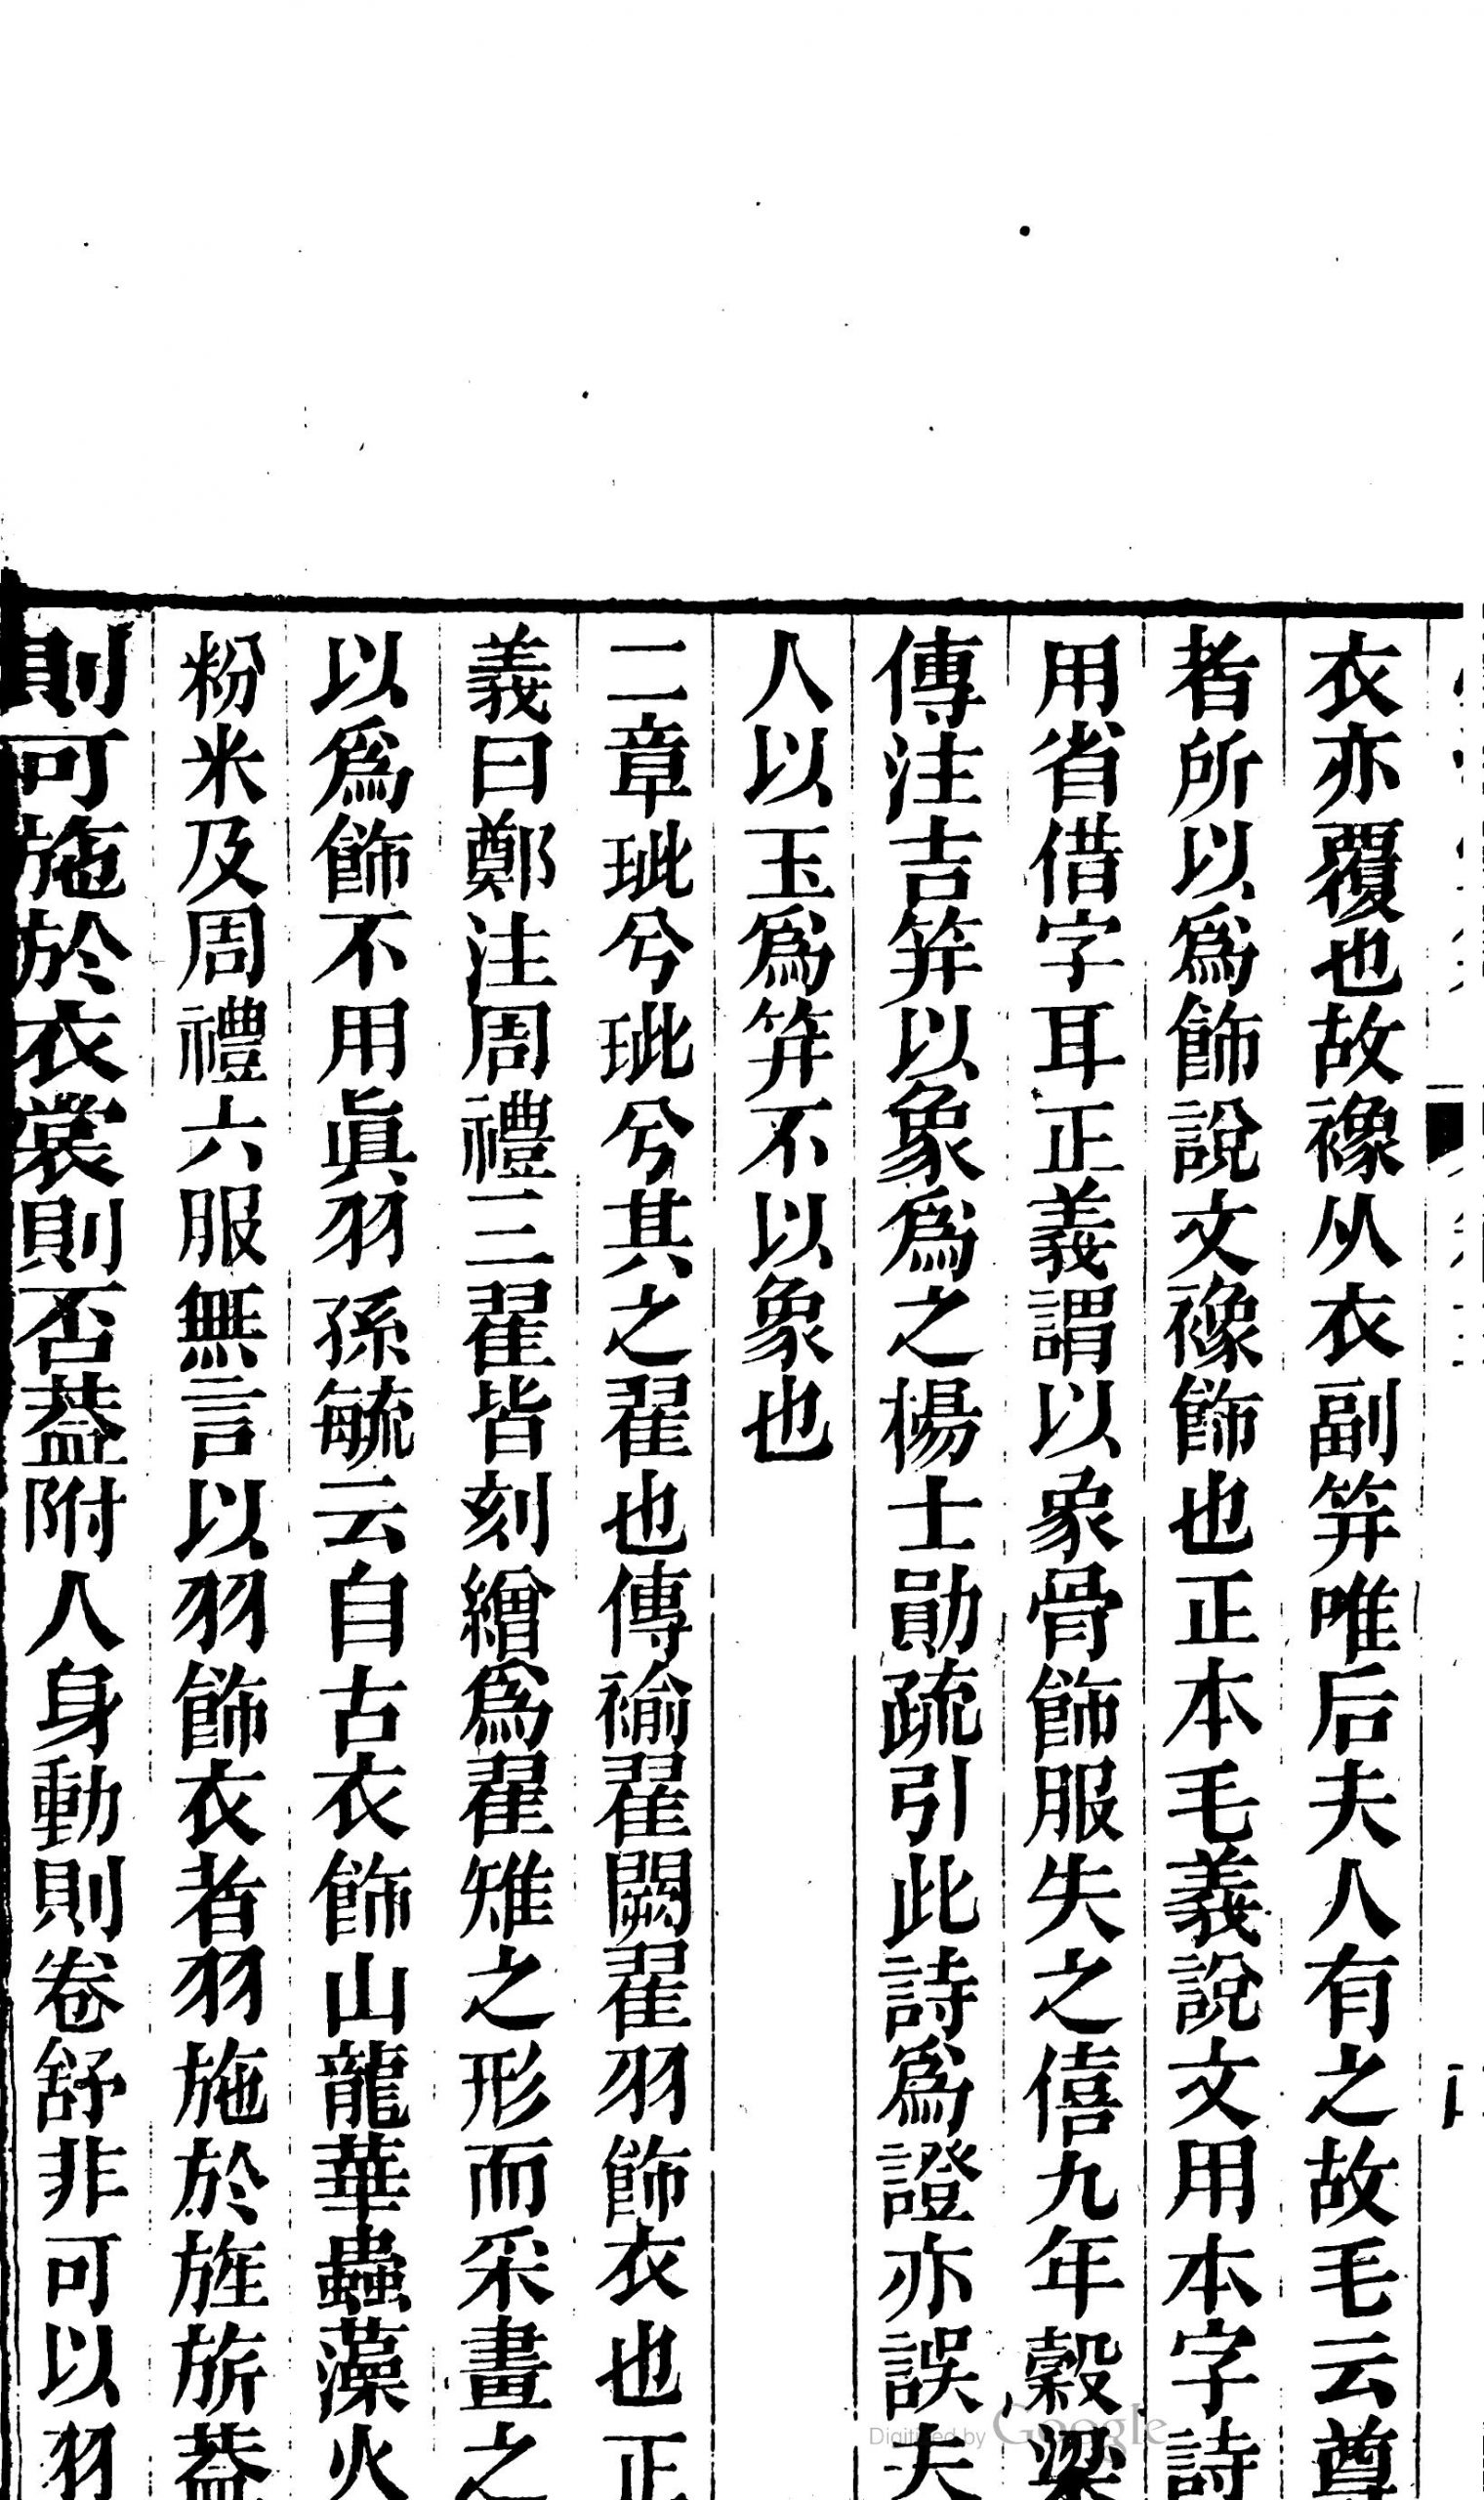 衣亦覆也故襐从衣副筓唯后夫人有之故毛云尊
者所以爲飾說文襐飾也正本毛義說文用本字詩
用省借字耳正義謂以象骨飾服失之僖九年穀梁
傳注吉筓以象爲之楊士勛疏引此詩爲證亦誤夫
人以玉爲筓不以象也
二章玼兮玼兮其之翟也傳褕翟闕翟羽飾衣也正
義曰鄭注周禮三翟皆刻繒爲翟雉之形而采畫之
以爲飾不用眞羽孫毓云自古衣飾山龍華蟲藻火
粉米及周禮六服無言以羽飾衣者羽施於旌旂葢
則可施於衣裳則否葢附人身動則卷舒非可以羽
Digitized by Google